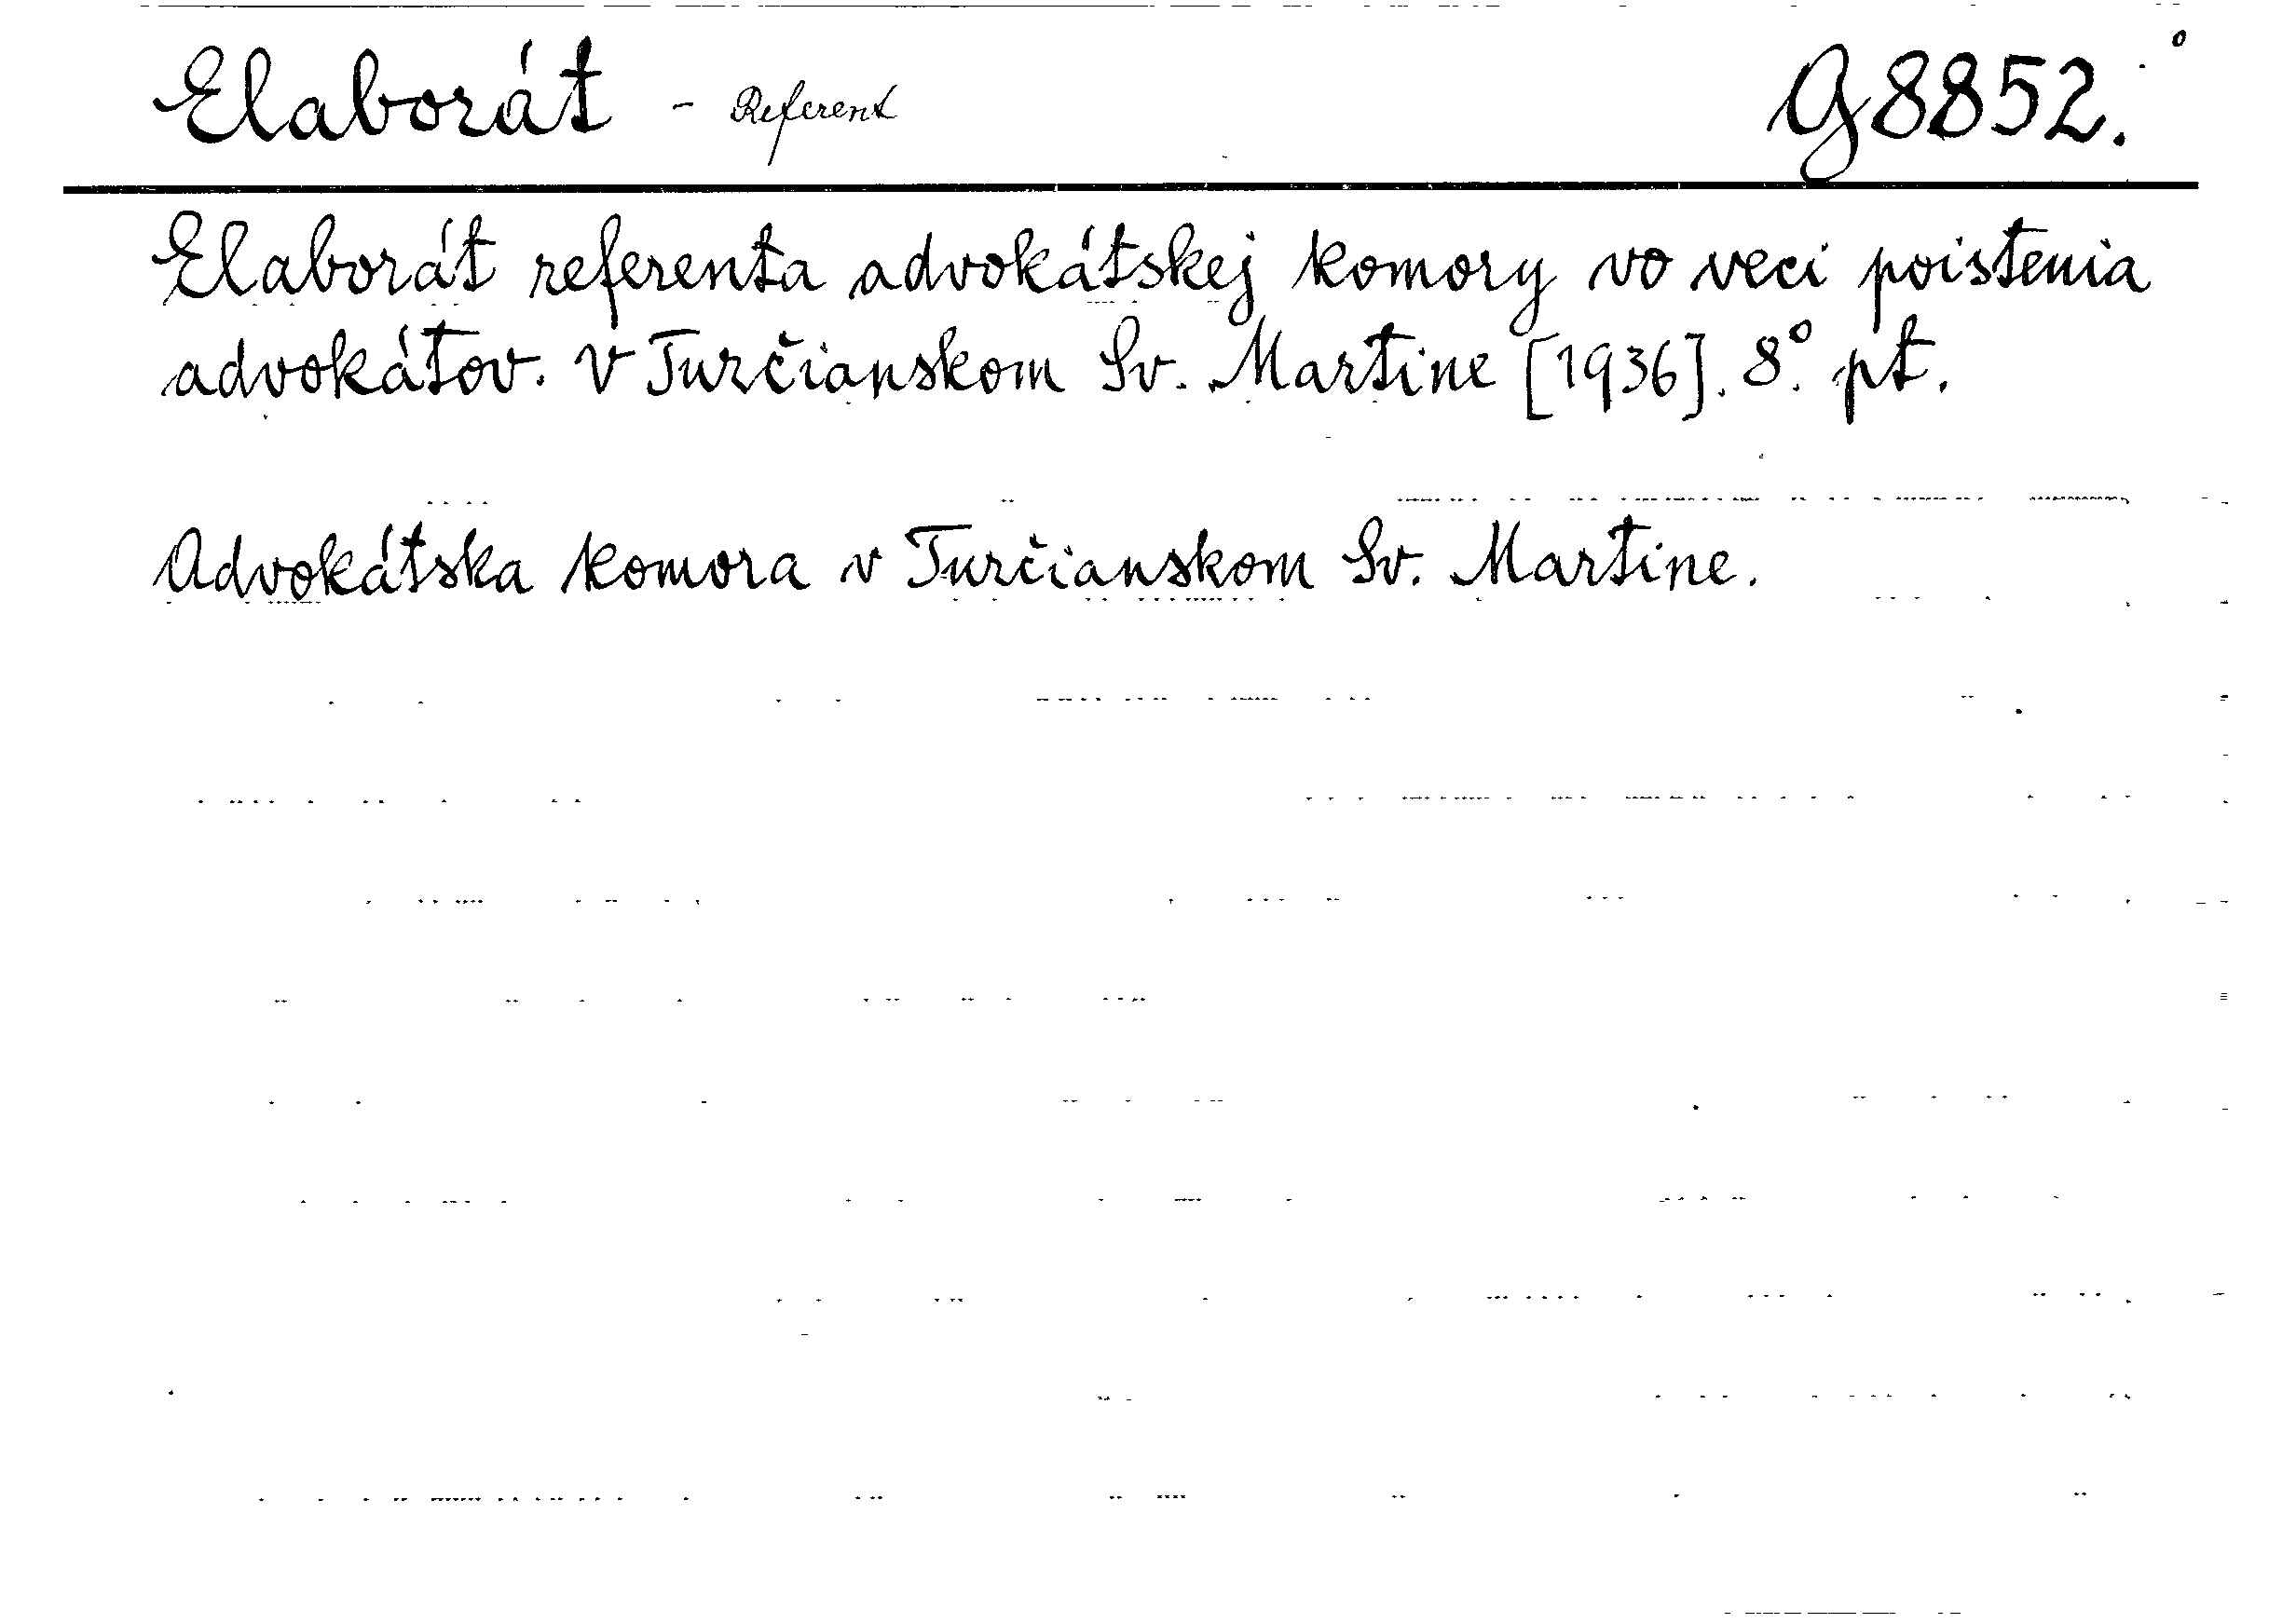 Elaborát - Referent G8852.
Elaborát referenta advokátskej komory vo veci poistenia
advokátov. V Turčianskom Sv. Martine [1936]. 8°. pt.
Advokátska komora v Turčianskom Sv. Martine.